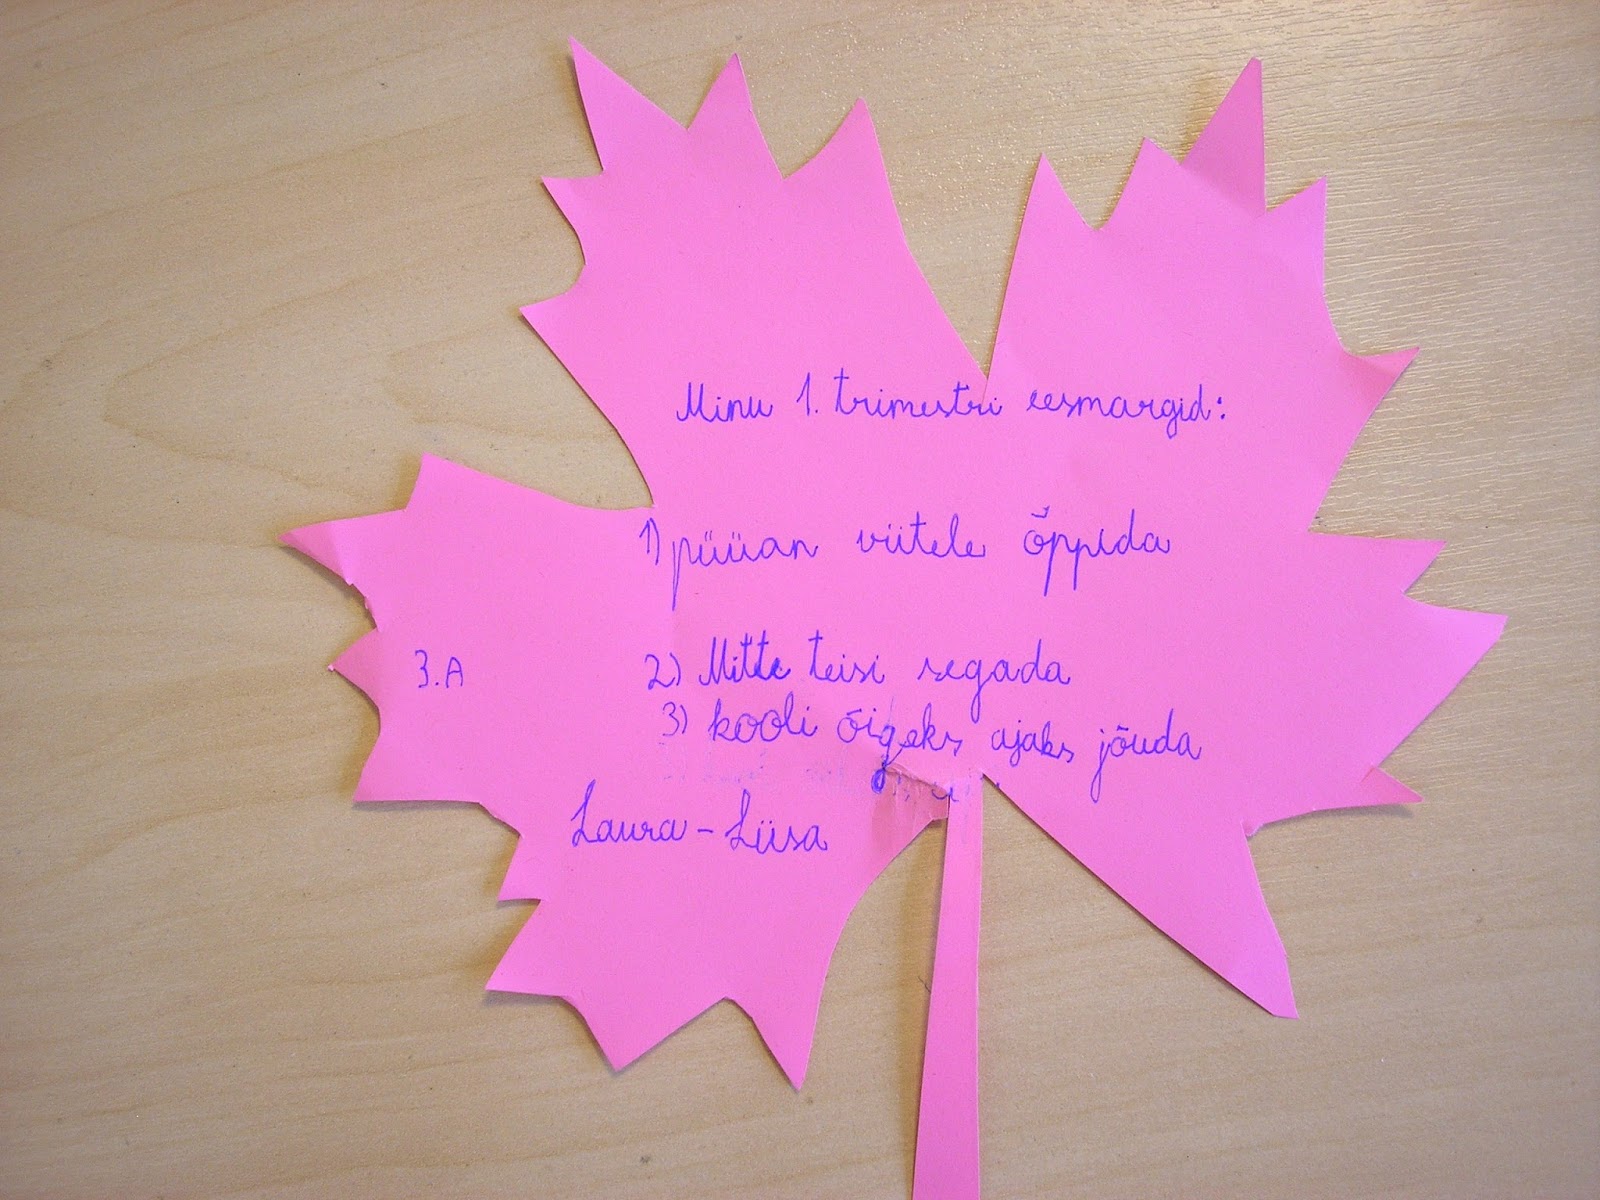 Minu 1. trimestri eesmargid:
1) püüan viitele õppida
3.A
2) Mitte teisi segada
3) kooli õigeks ajaks jõuda
Laura-Liisa